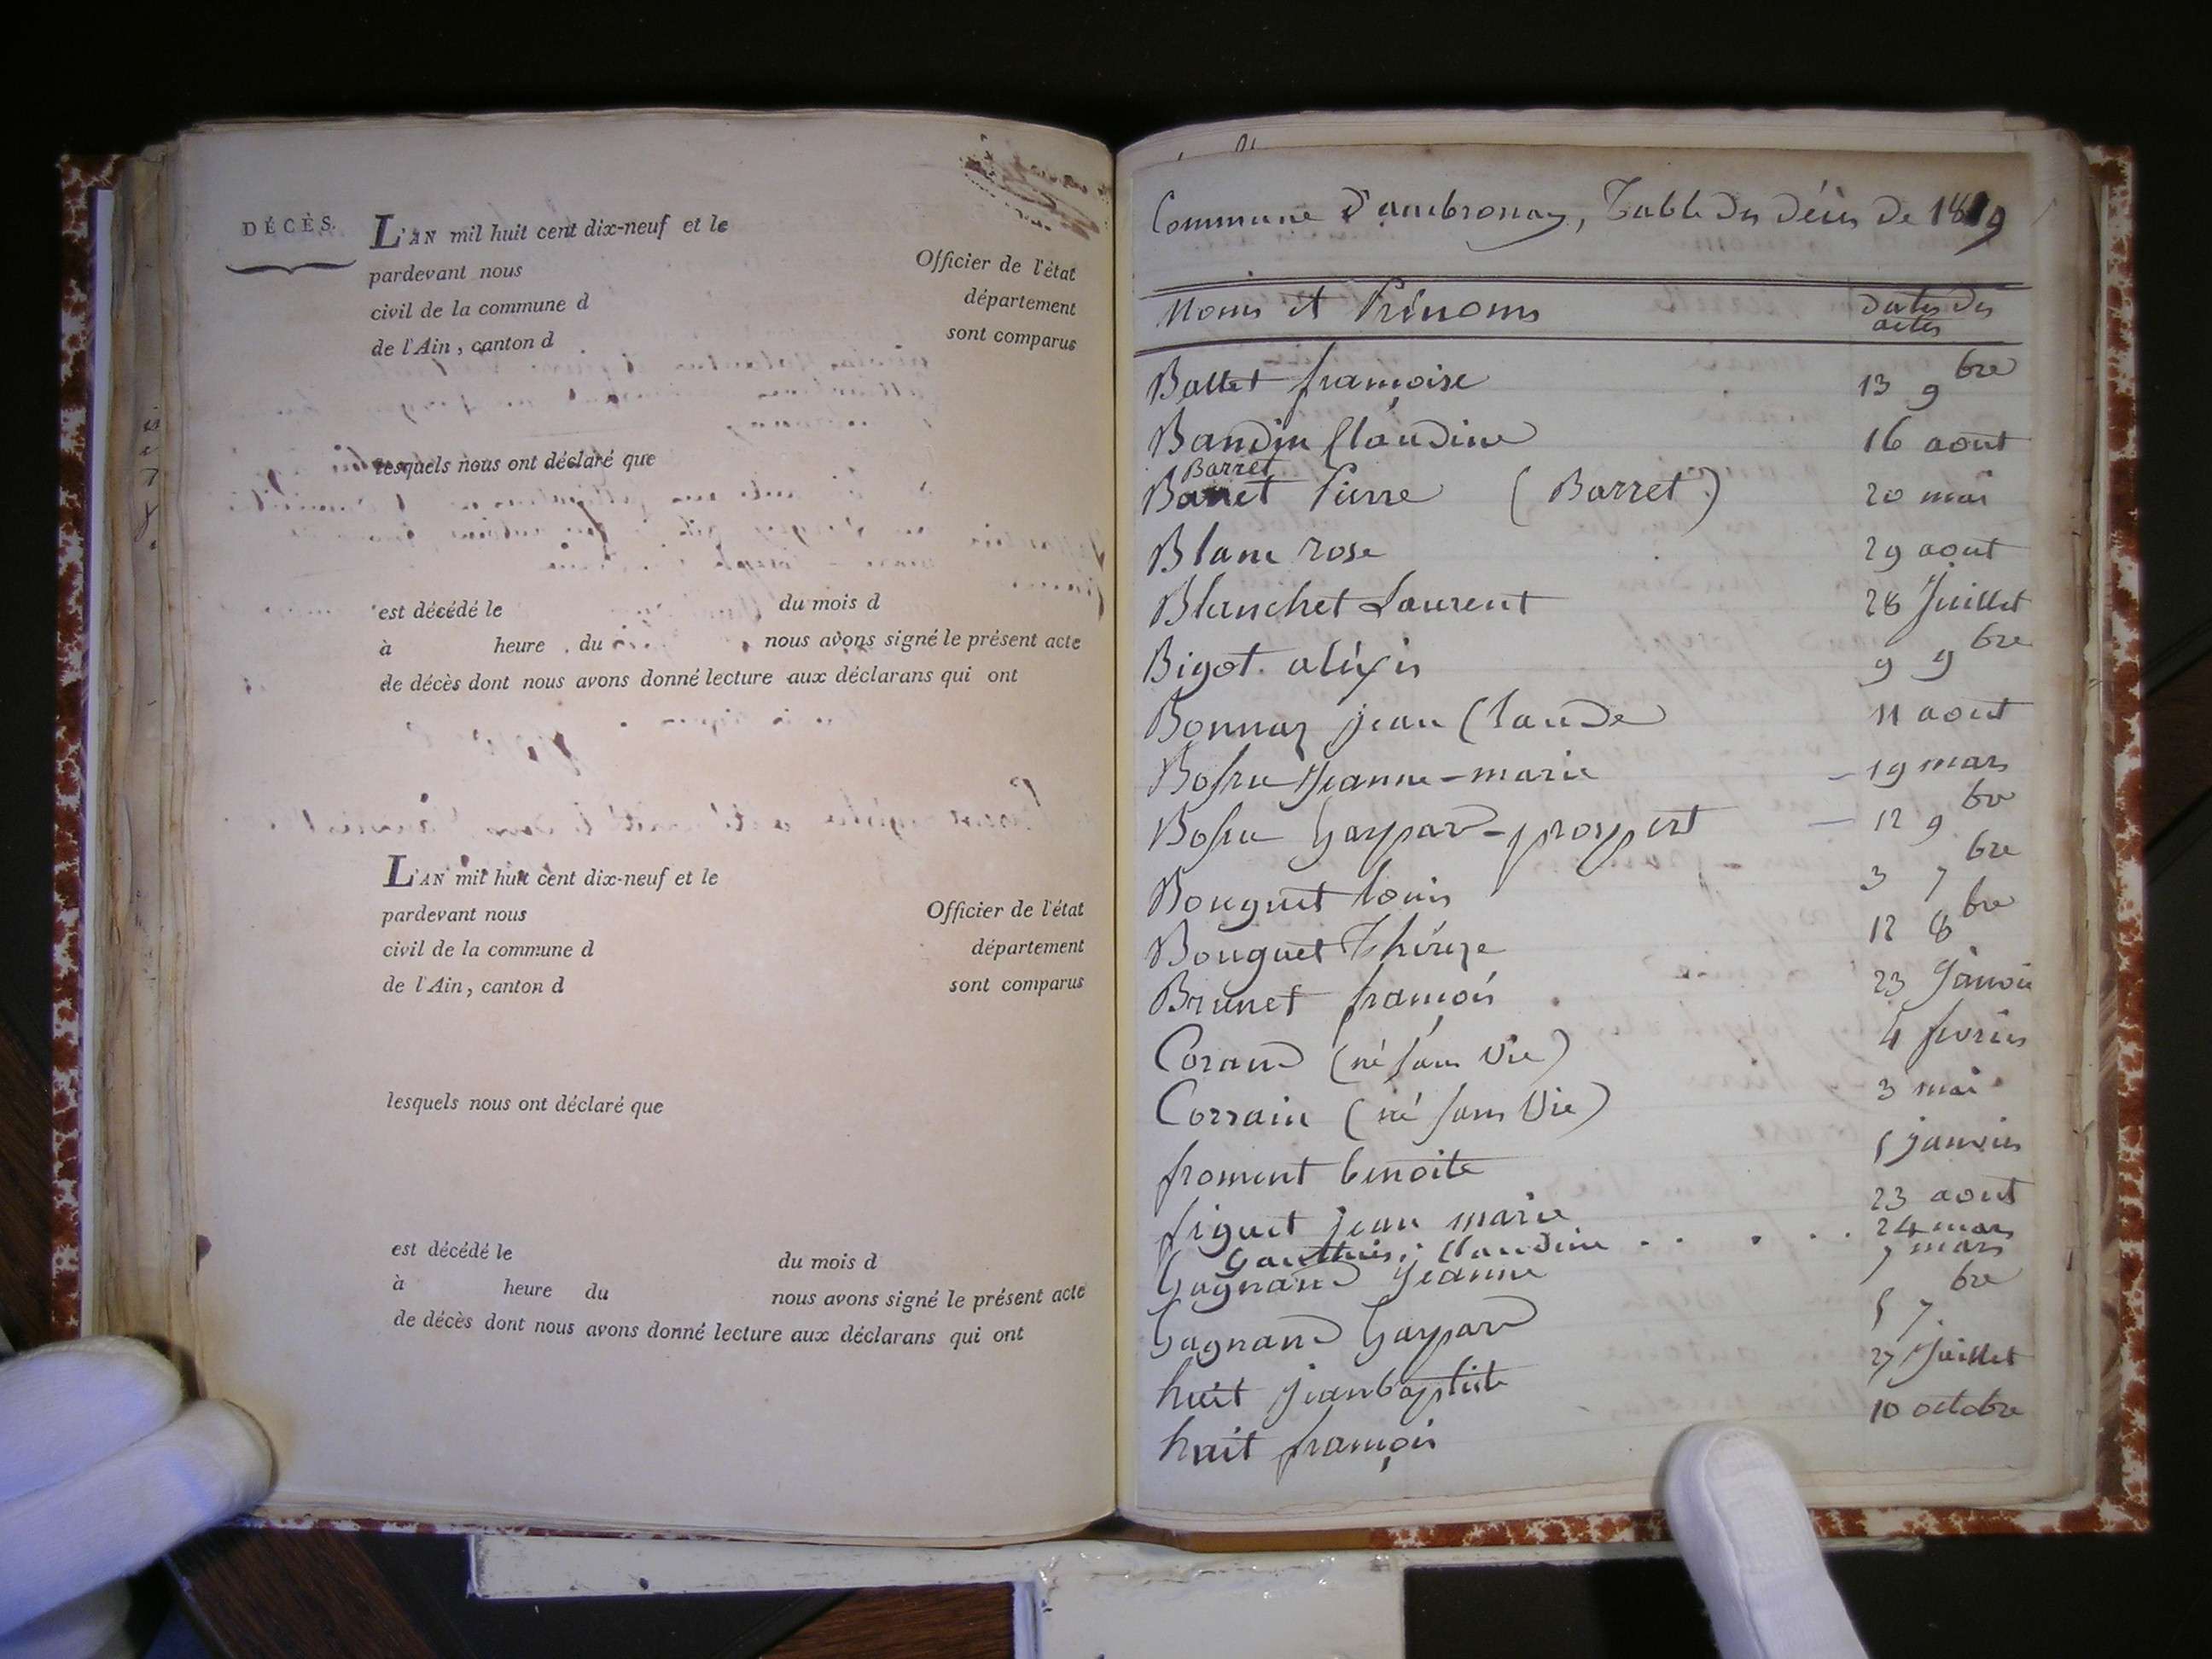 DÉCÈS.
L'AN mil huit cent dix-neuf et le
pardevant nous Officier de l'état
civil de la commune d département
de l'Ain, canton d sont comparus
lesquels nous ont déclaré que
est décédé le du mois d
à heure du nous avons signé le présent acte
de décès dont nous avons donné lecture aux déclarans qui ont
L'AN mil huit cent dix-neuf et le
pardevant nous Officier de l'état
civil de la commune d département
de l'Ain, canton d sont comparus
lesquels nous ont déclaré que
est décédé le du mois d
à heure du nous avons signé le présent acte
de décès dont nous avons donné lecture aux déclarans qui ont
Commune d'ambronay, Table des décès de 1819
Noms et Prénoms dates des
actes
Ballet françoise 13 9bre
Bandin Claudine 16 aout
Barret
Pierre (Barret) 20 mai
Blanc rose 29 aout
Blanchet Laurent 28 Juillet
Bigot alexis 9 9bre
Bonnaz jean Claude 11 aout
Jeanne-marie 19 mars
Gaspard-prospert 12 9bre
Bouguet louis 3 7bre
Bouguet Thérèze 12 8bre
Brunet françois 23 Janvier
Corand (né sans Vie) 4 fevrier
Corrain (né sans Vie) 3 mai
froment benoite 5 janvier
figuet jean marie 23 aout
Gauthier Claudine . . . . . 24 mars
Gagnand Jeanne 7 mars
Gagnand Gaspard 5 7bre
huit jeanbaptiste 27 Juillet
huit françois 10 octobre